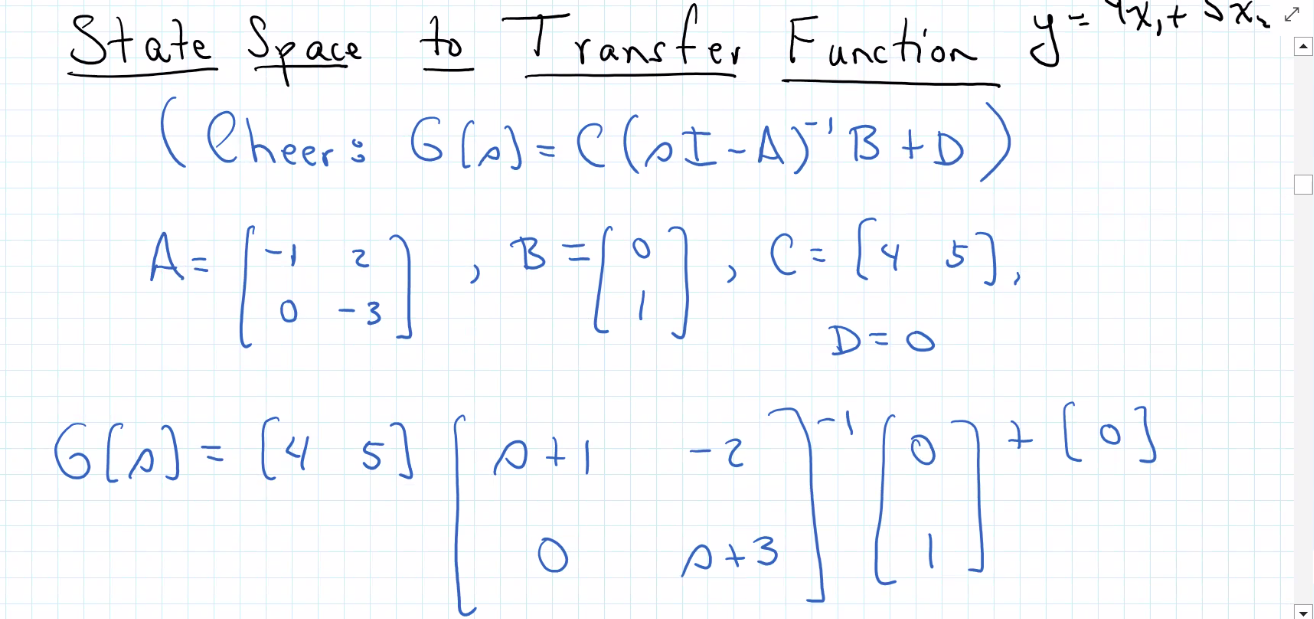 State Space to Transfer Function y = 4x₁ + 5x₂
(Cheer: G(s) = C(sI - A)⁻¹B + D)
A = [-1 2; 0 -3], B = [0; 1], C = [4 5],
D = 0
G(s) = [4 5] [s+1 -2; 0 s+3]⁻¹ [0; 1] + [0]